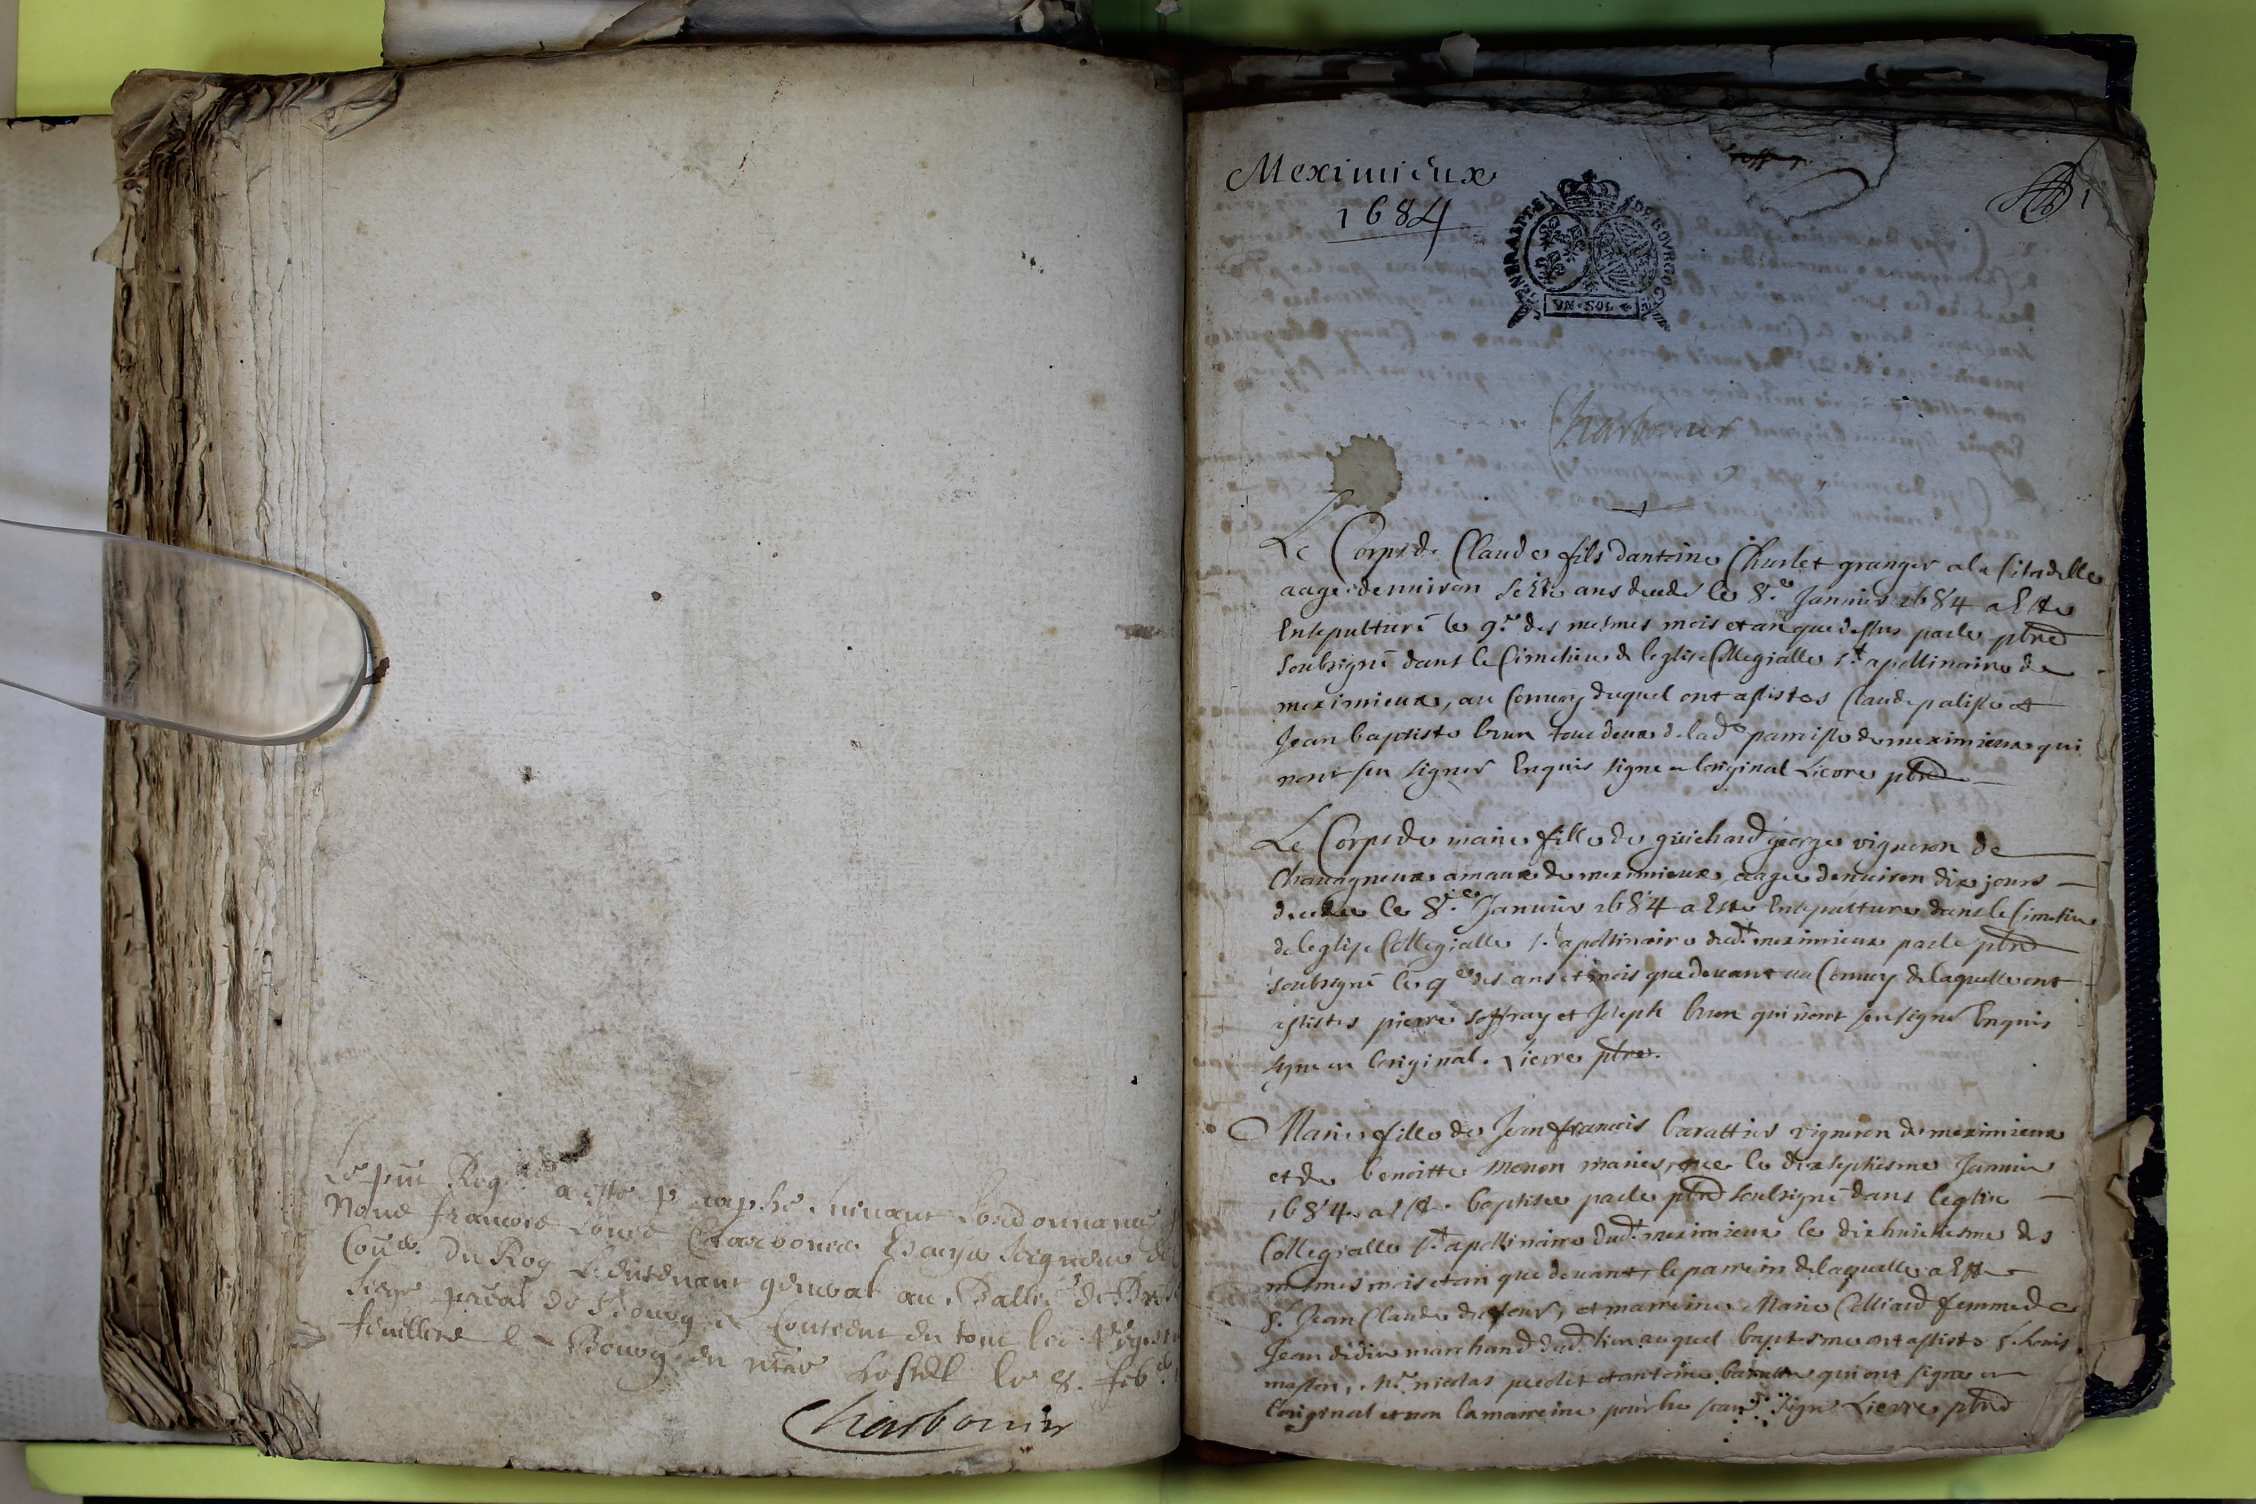 Le pnt Reg.e a esté paraphé suivant lordonnance
Nous francois Louis Charbonnier Escuyer seigneur de
Con.er du Roy Lieutenant general au Balli.e de Bresse
siege p̄nal de Bourg et contient du tout
feuillets Bourg en n̄re hostel le 8. feb.er
Charbonnier
Meximieux
1684
GENERALITE DE BOVRGOGNE
VN·SOL
1
Charbonnier
Le Corps de Claude fils dantoine Churlet granger a la Citadelle
aage denviron seize ans decedé le 8.e Janvier 1684 a Este
Ensepulturé le 9.e des mesmes mois et an que dessus par le pbre
soubsigné dans le Cimetiere de leglise Collegialle s.t apollinaire de
meximieux, au Convoy duquel ont assistes Claude palisse et
Jean baptiste brun tous deux de lad.e parroisse de meximieux qui
nont seu signer Enquis signe a loriginal Lievre pbre
Le Corps de marie fille de guichard george vigneron de
Chavagneux amaux de meximieux, aagee denviron dix jours
decedee le 8.e Janvier 1684 a Este Ensepulturee dans le Cimetiere
de leglise Collegialle s.t apollinaire dud.t meximieux par le pbre
soubsigné le 9.e des ans et mois que devant au Convoy de laquelle ont
assistes pierre soffray et Joseph brun qui nont seu signe Enquis
signe en loriginal. Lievre pbre.
Marie fille de Jean francois barattier vigneron de meximieux
et de benoitte monon maries, nee le dixseptiesme Janvier
1684. a esté baptisee par le pbre soubsigné dans leglise
Collegialle s.t apollinaire dud.t meximieux le dixhuictiesme des
mesmes mois et an que devant, le parrein de laquelle a Este
s.r Jean Claude dufour, et marreine Marie Colliard femme de
Jean didier marchand dud. lieu auquel baptesme ont assiste s.r Louis
masson, M.r nicolas perdet et antoine barattier qui ont signe en
loriginal et non la marreine pour ne scavoir signé Lievre pbre